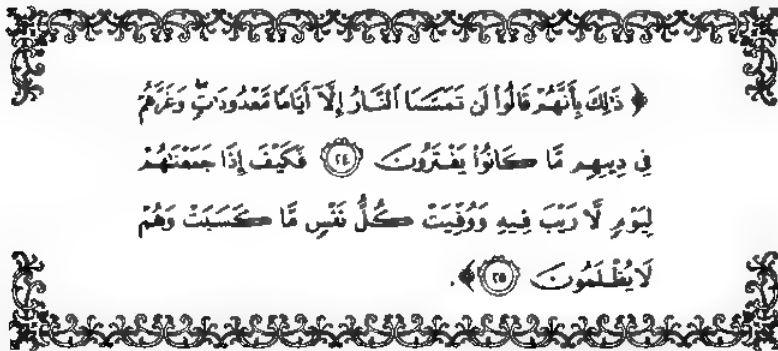 ﴿ ذَٰلِكَ بِأَنَّهُمْ قَالُوا۟ لَن تَمَسَّنَا ٱلنَّارُ إِلَّآ أَيَّامًا مَّعْدُودَٰتٍۢ ۖ وَغَرَّهُمْ
فِى دِينِهِم مَّا كَانُوا۟ يَفْتَرُونَ ٢٤ فَكَيْفَ إِذَا جَمَعْنَـٰهُمْ
لِيَوْمٍۢ لَّا رَيْبَ فِيهِ وَوُفِّيَتْ كُلُّ نَفْسٍۢ مَّا كَسَبَتْ وَهُمْ
لَا يُظْلَمُونَ ٢٥ ﴾.